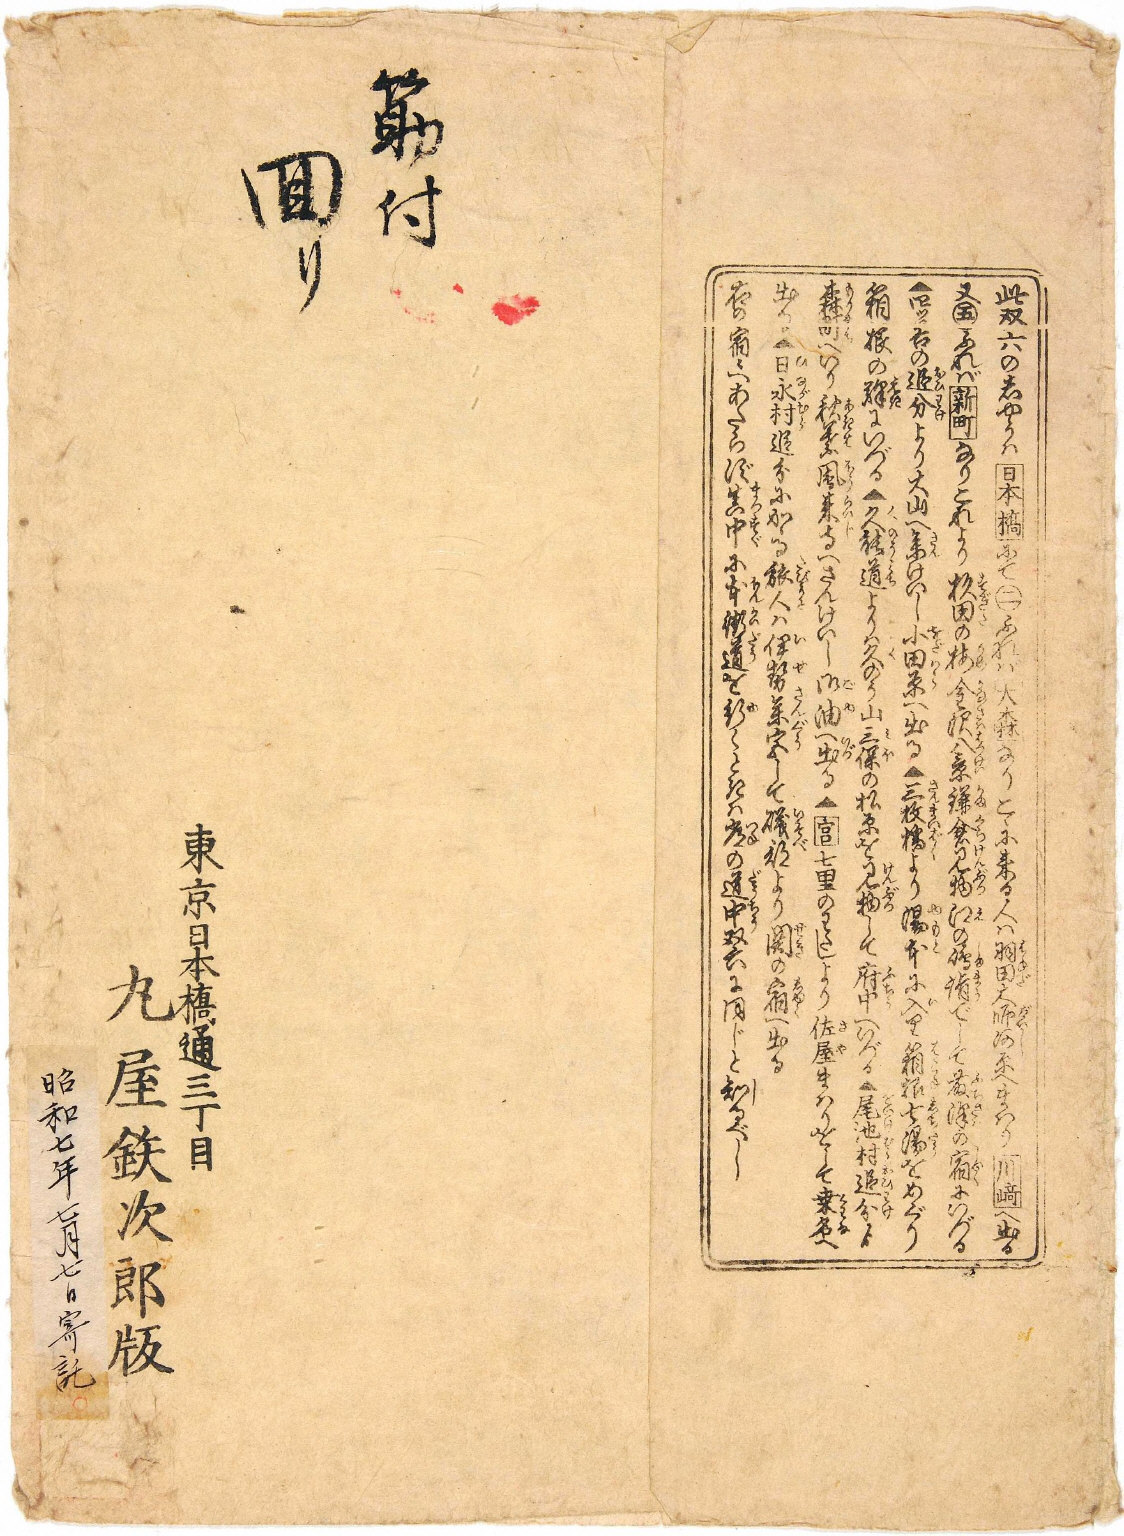 此双六のしやうハ日本橋にて㊁ふれバ大森なりこゝに来る人ハ羽田大師河原へまはり川﨑へ出る
又五ふれバ新町なりこれより杉田の梅金沢八景鎌倉見物江の嶋詣でして藤沢の宿にいづる
▲四ツ谷の追分より大山へ参けいし小田原へ出る▲三枚橋より湯本に入り箱根七湯をめぐり
箱根の駅にいづる▲久能道よりハ久のう山三保の松原を見物して府中へいづる▲尾池村追分より
森町へいり秋葉風来寺へさんけいし御油へ出る▲宮七里のわたしより佐屋まはりをして桑名へ
出る▲日永村追分に出る旅人ハ伊勢参宮して磯部より関の宿へ出る
右の宿へあたらず真中に本街道を行くときハ常の道中双六に同じと知るべし
筋付
回り
東京日本橋通三丁目
丸屋鉄次郎版
昭和七年七月七日寄託